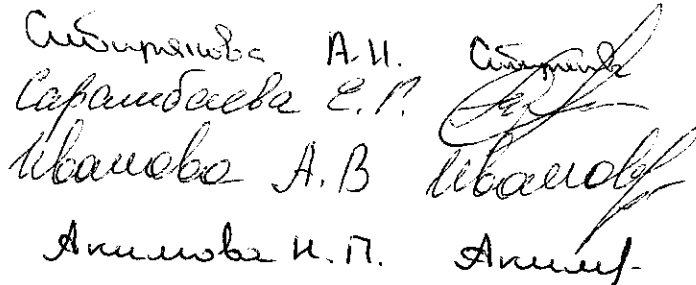 Сибирякова А.И.
Сарамбаева Е.Г.
Иванова А.В Иванов
Акимова Н.П. Аким